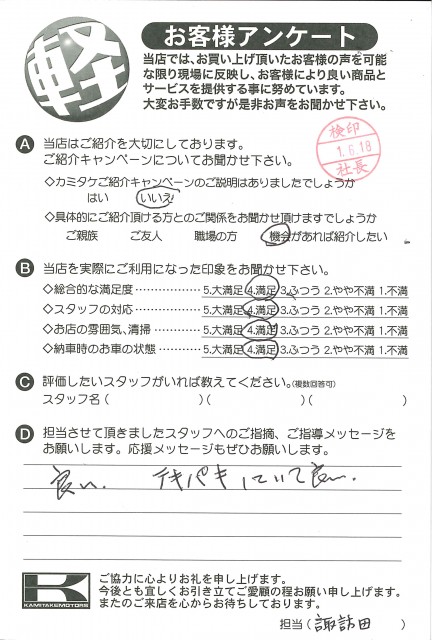 軽
お客様アンケート
当店では、お買い上げ頂いたお客様の声を可能
な限り現場に反映し、お客様により良い商品と
サービスを提供する事に努めています。
大変お手数ですが是非お声をお聞かせ下さい。
検印
1.6.18
社長
A 当店はご紹介を大切にしております。
ご紹介キャンペーンについてお聞かせ下さい。
◇カミタケご紹介キャンペーンのご説明はありましたでしょうか
はい いいえ
◇具体的にご紹介頂ける方とのご関係をお聞かせ頂けますでしょうか
ご親族 ご友人 職場の方 機会があれば紹介したい
B 当店を実際にご利用になった印象をお聞かせ下さい。
◇総合的な満足度・・・・・・・・・・ 5.大満足 4.満足 3.ふつう 2.やや不満 1.不満
◇スタッフの対応・・・・・・・・・・ 5.大満足 4.満足 3.ふつう 2.やや不満 1.不満
◇お店の雰囲気、清掃・・・・・ 5.大満足 4.満足 3.ふつう 2.やや不満 1.不満
◇納車時のお車の状態・・・・・ 5.大満足 4.満足 3.ふつう 2.やや不満 1.不満
C 評価したいスタッフがいれば教えてください。(複数回答可)
スタッフ名( )( )( )
D 担当させて頂きましたスタッフへのご指摘、ご指導メッセージを
お願いします。応援メッセージもぜひお願いします。
良い。 テキパキしていて良い。
KAMITAKEMOTORS
ご協力に心よりお礼を申し上げます。
今後とも宜しくお引き立てご愛顧の程お願い申し上げます。
またのご来店を心からお待ちしております。
担当( 諏訪田 )